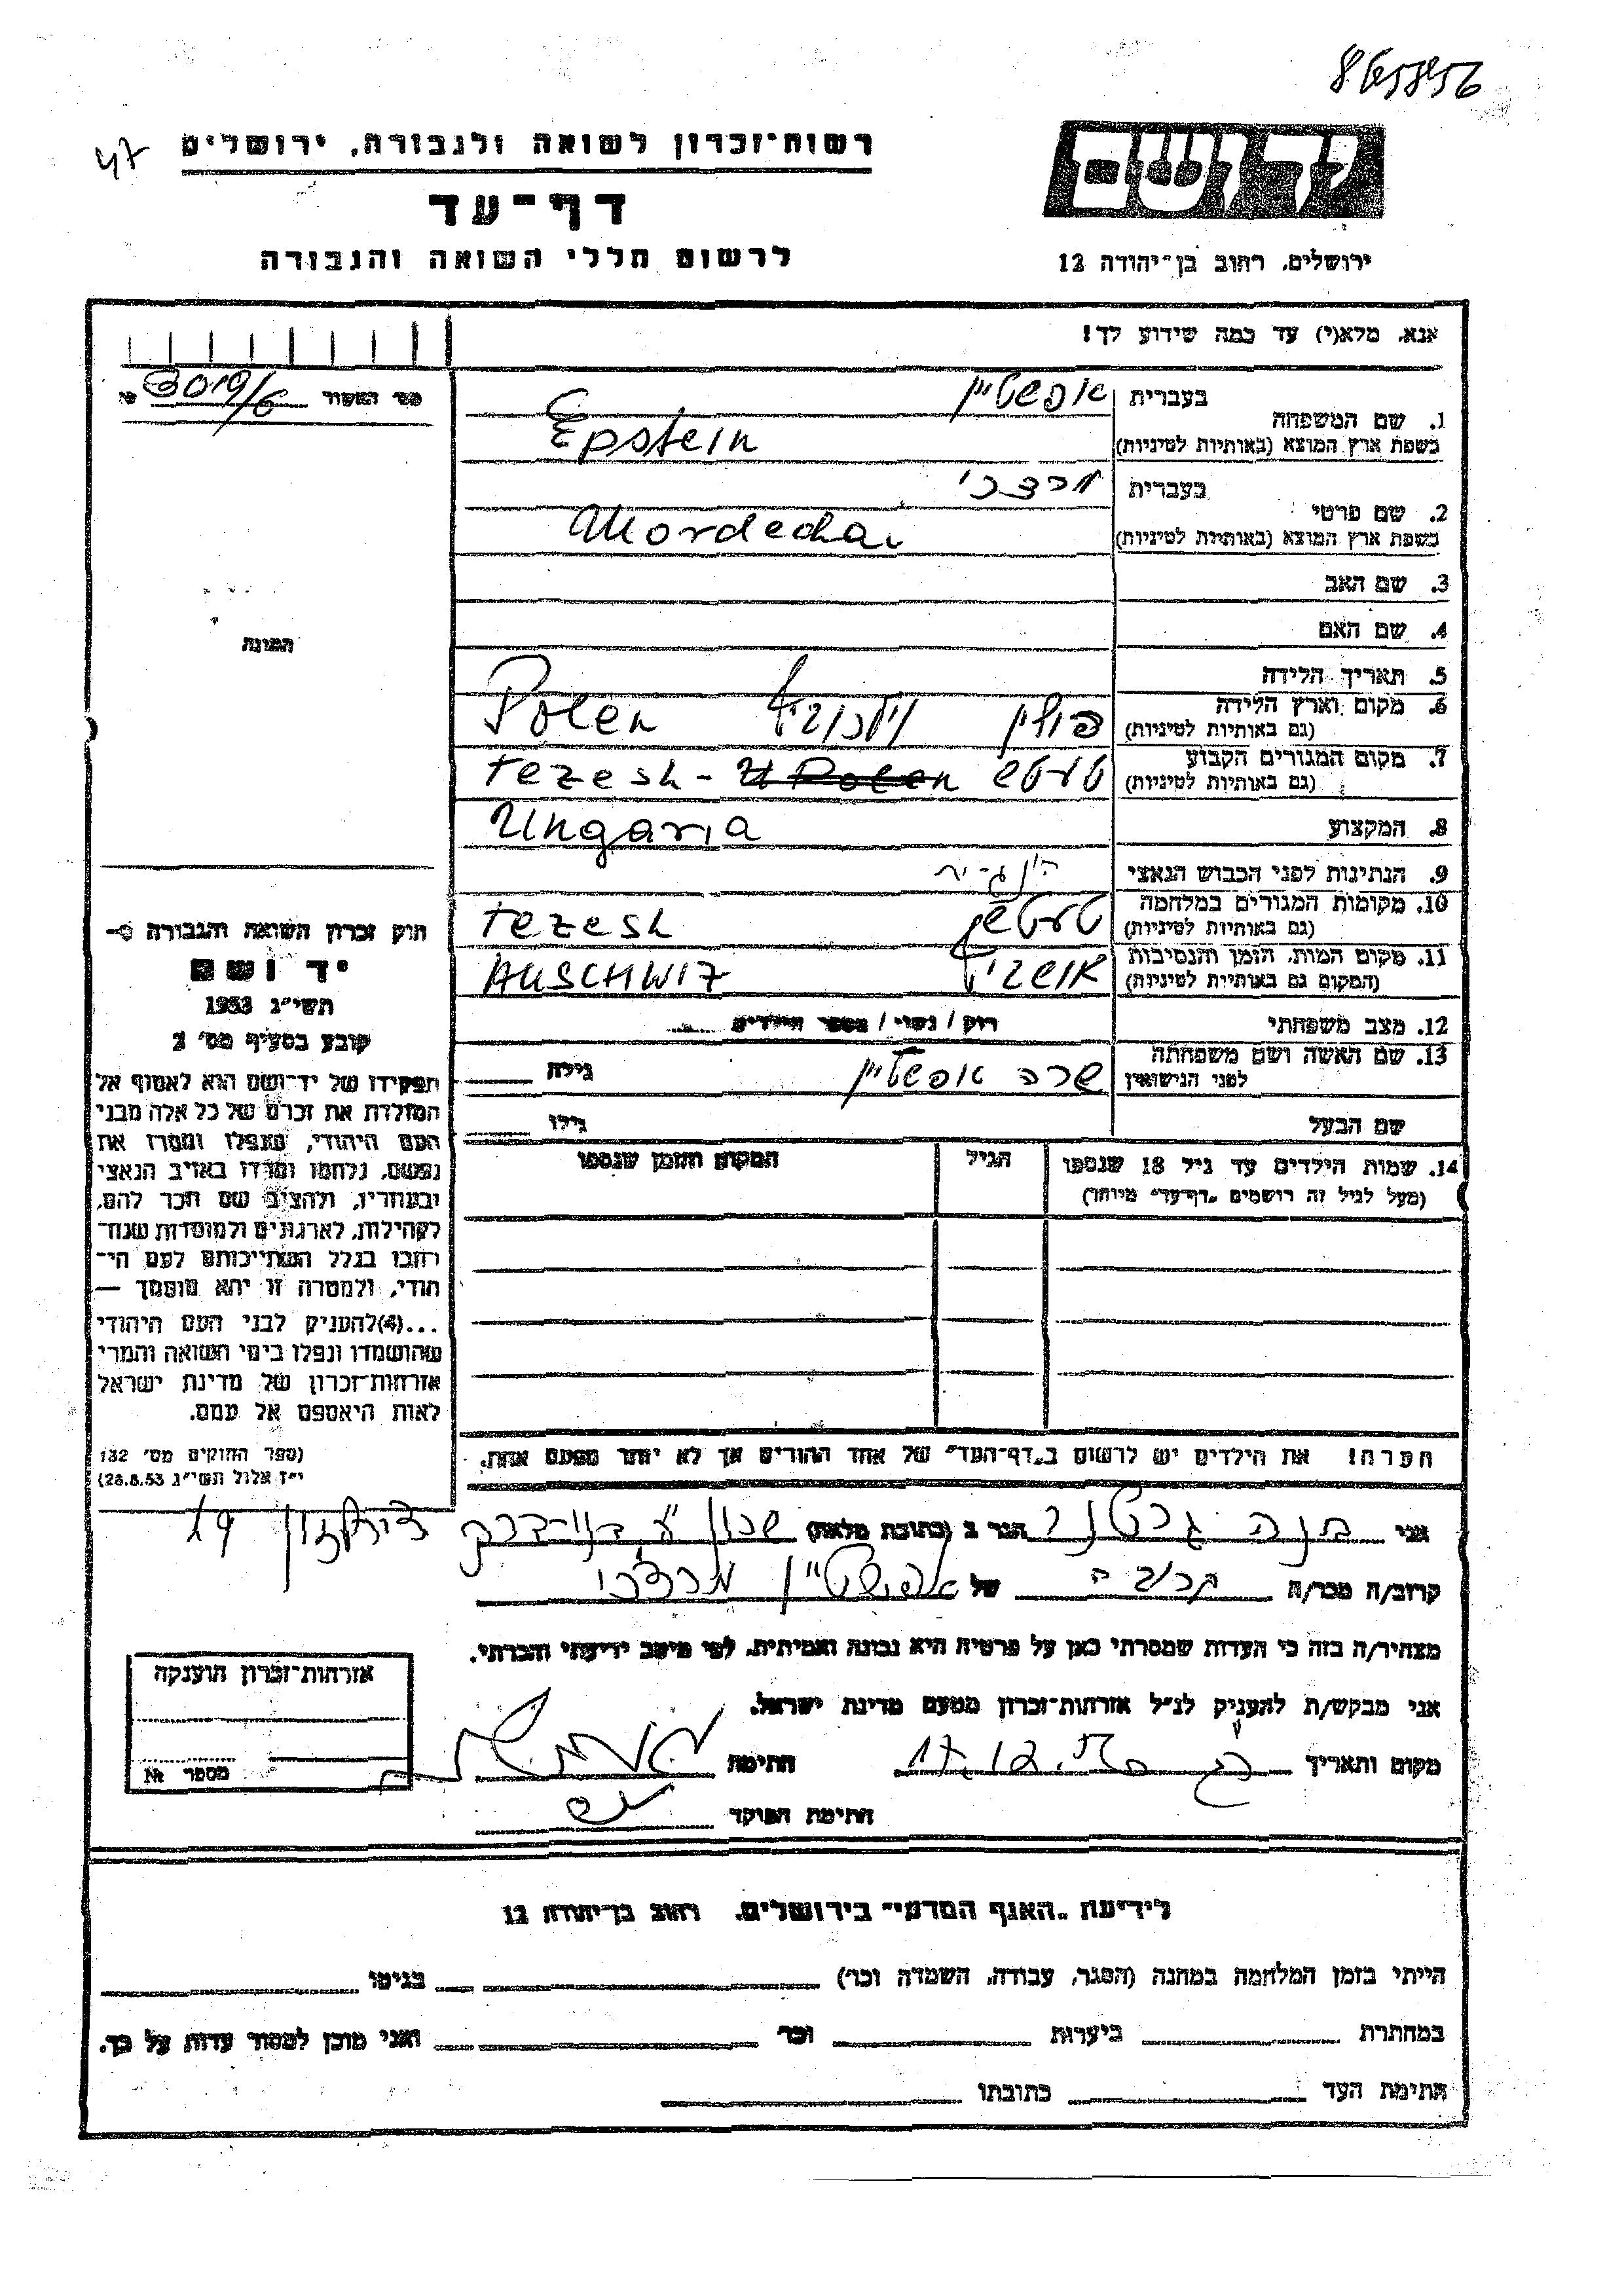 8658956
רשות־זכרון לשואה ולגבורה, ירושלים
דף־עד
לרשום חללי השואה והגבורה
ירושלים, רחוב בן־יהודה 12
אנא, מלא(י) עד כמה שידוע לך!
1. שם המשפחה
בעברית אפשטיין
בשפת ארץ המוצא (באותיות לטיניות) Epstein
2. שם פרטי
בעברית מרדכי
בשפת ארץ המוצא (באותיות לטיניות) Mordechai
3. שם האב
4. שם האם
5. תאריך הלידה
6. מקום וארץ הלידה פולין Polen
(גם באותיות לטיניות)
7. מקום המגורים הקבוע Tezesh -
(גם באותיות לטיניות)
8. המקצוע Ungaria
9. הנתינות לפני הכבוש הנאצי
10. מקומות המגורים במלחמה Tezesh
(גם באותיות לטיניות)
11. מקום המות, הזמן והנסיבות AUSCHWIZ
(המקום גם באותיות לטיניות)
12. מצב משפחתי רוק / נשוי / מספר הילדים
13. שם האשה ושם משפחתה שרה אפשטיין גילה
לפני הנישואין
שם הבעל גילו
14. שמות הילדים עד גיל 18 שנספו הגיל המקום והזמן שנספו
(מעל לגיל זה רושמים „דף־עד” מיוחד)
התמונה
חוק זכרון השואה והגבורה
יד ושם
תשי״ג 1953
קובע בסעיף מס׳ 2
תפקידו של יד־ושם הוא לאסוף אל
המולדת את זכרם של כל אלה מבני
העם היהודי, שנפלו ומסרו את
נפשם, נלחמו ומרדו באויב הנאצי
ובעוזריו, ולהציב שם וזכר להם,
לקהילות, לארגונים ולמוסדות שנח־
רבו בגלל השתייכותם לעם הי־
הודי, ולמטרה זו יהא מוסמך —
...(4)להעניק לבני העם היהודי
שהושמדו ונפלו בימי השואה והמרי
אזרחות־זכרון של מדינת ישראל
לאות היאספם אל עמם.
(ספר החוקים מס׳ 132
י״ז אלול תשי״ג 28.8.53)
הערה! את הילדים יש לרשום ב„דף־העד” של אחד ההורים אך לא יותר מפעם אחת.
אני הגר ב (כתובת מלאה)
קרוב/ה מכר/ה של אפשטיין מרדכי
מצהיר/ה בזה כי העדות שמסרתי כאן על פרטיה היא נכונה ואמיתית, לפי מיטב ידיעתי והכרתי.
אני מבקש/ת להעניק לנ״ל אזרחות־זכרון מטעם מדינת ישראל.
מקום ותאריך חתימה
חתימת הפוקד
אזרחות־זכרון הוענקה
מספר №
לידיעת „האגף המדעי” בירושלים, רחוב בן־יהודה 12
הייתי בזמן המלחמה במחנה (הסגר, עבודה, השמדה וכו׳) בגיטו
במחתרת ביערות וכו׳ ואני מוכן למסור עדות על כך.
חתימת העד כתובתו